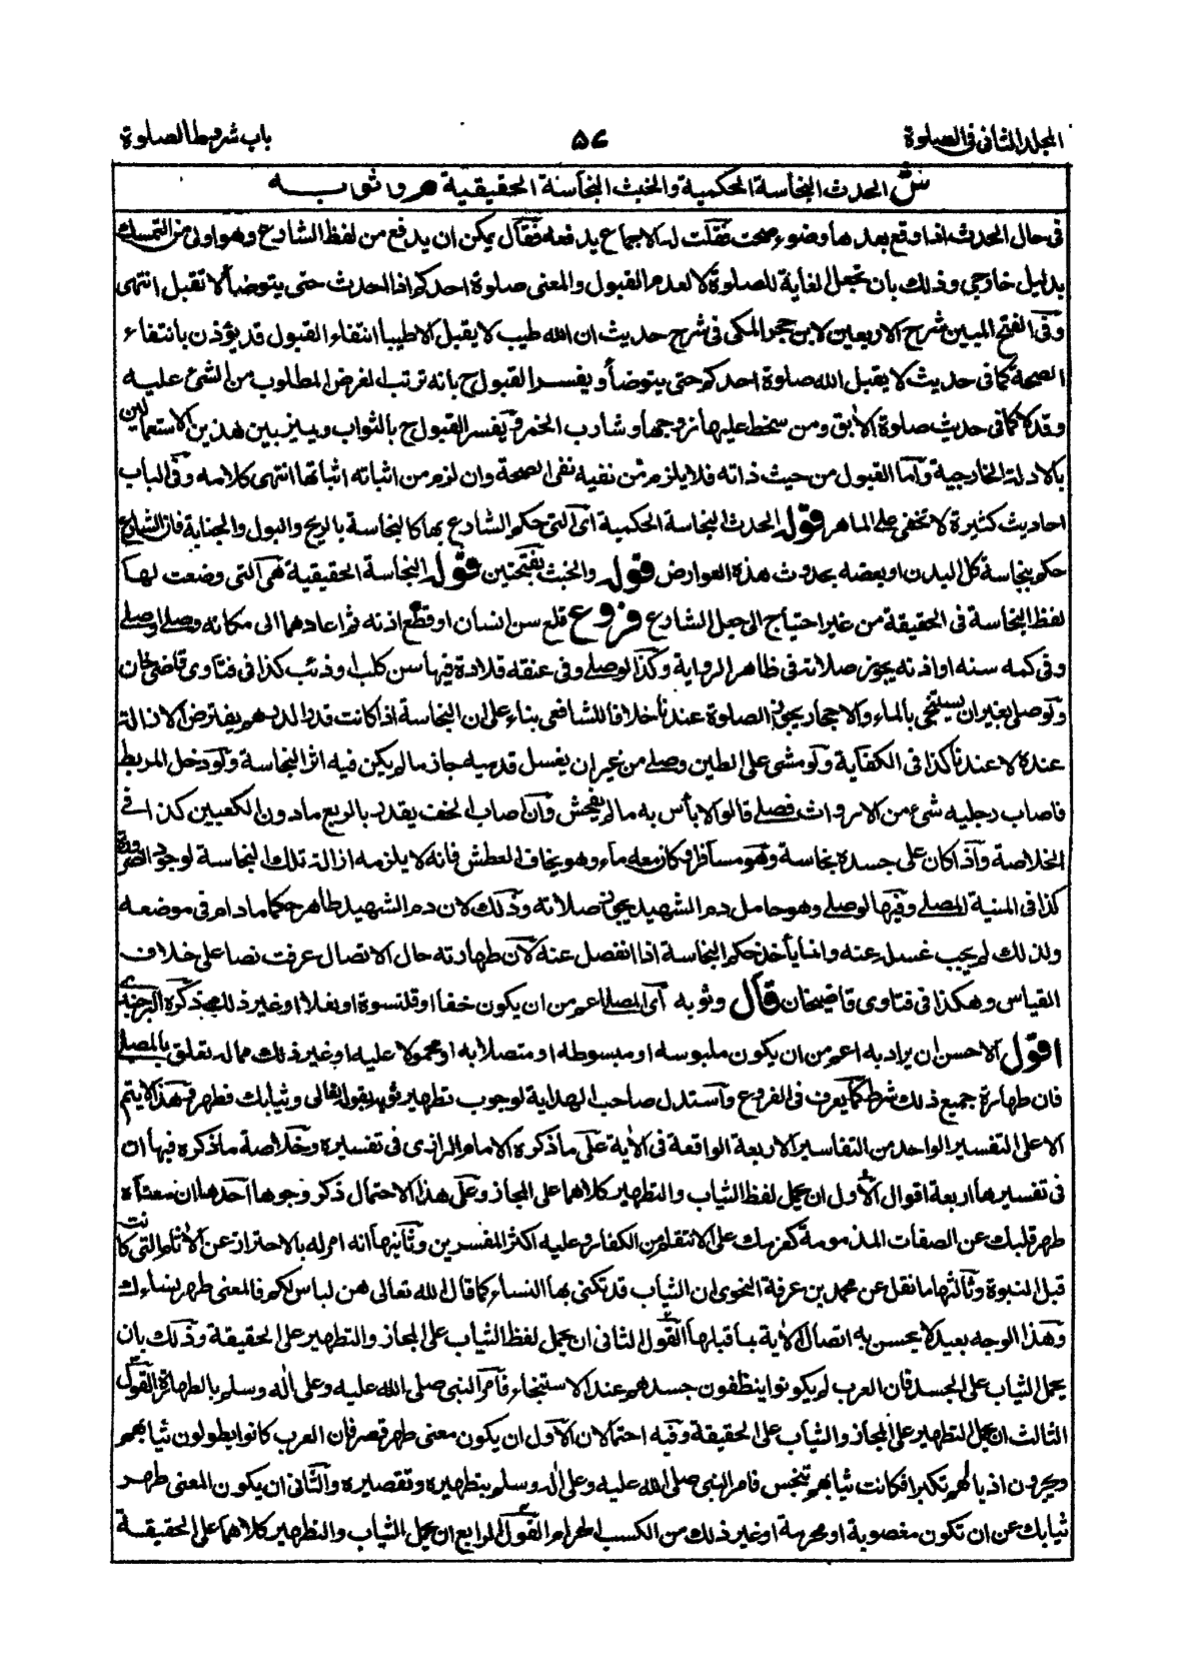 المجلد الثانى فى الصلوة
٥٦
باب شروط الصلوة
ش الحدث النجاسة الحكمية والخبث النجاسة الحقيقية م و ثوبه
فى حال الحدث اذا وقع بعدها وضوء صحت فقلت له الاجماع يدفعه فقال يمكن ان يدفع من لفظ الشارع وهو اولى من التمسك
بدليل خارجى وذلك بان تجعل الغاية للصلوة لا لعدم القبول والمعنى صلوة احدكم اذا احدث حتى يتوضأ لا تقبل انتهى
وفى الفتح المبين شرح الاربعين لابن حجر المكى فى شرح حديث ان الله طيب لا يقبل الا طيبا انتفاء القبول قد يؤذن بانتفاء
الصحة كما فى حديث لا يقبل الله صلوة احدكم حتى يتوضأ ويفسر القبول ح بانه ترتب الغرض المطلوب من الشئ عليه
وقد لا كما فى حديث صلوة الآبق ومن سخط عليها زوجها وشارب الخمر ويفسر القبول ح بالثواب ويميز بين هذين الاستعمالين
بالادلة الخارجية وآما القبول من حيث ذاته فلا يلزم من نفيه نفى الصحة وان لزم من اثباته اثباتها انتهى كلامه وفى الباب
احاديث كثيرة لا تخفى على الماهر قوله الحدث النجاسة الحكمية آى التى حكم الشارع بها كالنجاسة بالريح والبول والجنابة فان الشارع
حكم بنجاسة كل البدن او بعضه بحدوث هذه العوارض قوله والخبث بفتحتين قوله النجاسة الحقيقية هى التى وضعت لها
لفظ النجاسة فى الحقيقة من غير احتياج الى جعل الشارع فروع قلع سن انسان او قطع اذنه ثم اعادهما الى مكانه وصلى او صلى
وفى كمه سنه او اذنه يجوز صلاته فى ظاهر الرواية وكذا لو صلى وفى عنقه قلادة فيها سن كلب او ذئب كذا فى فتاوى قاضى خان
ولو صلى بغير ان يستنجى بالماء والاحجار يجوز الصلوة عندنا خلافا للشافعى بناء على ان النجاسة اذا كانت قدر الدرهم يفترض الازالة
عنده لا عندنا كذا فى الكفاية ولو مشى على الطين وصلى من غير ان يغسل قدميه جاز ما لم يكن فيه اثر النجاسة ولو دخل المربط
فاصاب رجليه شئ من الارواث فصلى قالوا لا بأس به ما لم يفحش وان اصاب الخف يقدر بالربع ما دون الكعبين كذا فى
الخلاصة وآذا كان على جسده نجاسة وهو مسافر وكان معه ماء وهو يخاف العطش فانه لا يلزمه ازالة تلك النجاسة لوجود الضرورة
كذا فى المنية المصلى وفيها لو صلى وهو حامل دم الشهيد يجوز صلاته وذلك لان دم الشهيد طاهر حكما مادام فى موضعه
ولذلك لم يجب غسله عنه وانما يأخذ حكم النجاسة اذا انفصل عنه لان طهارته حال الاتصال عرفت نصا على خلاف
القياس وهكذا فى فتاوى قاضيخان قال وثوبه آى المصلى اعم من ان يكون خفا او قلنسوة او نعلا او غير ذلك ذكره البرجندى
اقول الاحسن ان يراد به اعم من ان يكون ملبوسه او مبسوطه او متصلا به او محمولا عليه او غير ذلك مما له تعلق بالمصلى
فان طهارة جميع ذلك شرط كما يعرف فى الفروع وآستدل صاحب الهداية لوجوب تطهير ثوبه بقوله تعالى وثيابك فطهر وهذا لا يتم
الا على التفسير الواحد من التفاسير الاربعة الواقعة فى الآية على ما ذكره الامام الرازى فى تفسيره وخلاصة ما ذكره فيها ان
فى تفسيرها اربعة اقوال الاول ان يحمل لفظ الثياب والتطهير كلاهما على المجاز وعلى هذا الاحتمال ذكر وجوها آحدها ان معناه
طهر قلبك عن الصفات المذمومة كعزمك على الانتقام من الكفار وعليه اكثر المفسرين وثآنيها انه امر له بالاحتراز عن الآثام التى كانت
قبل النبوة وثآلثها ما نقل عن محمد بن عرفة النحوى ان الثياب قد تكنى بها النساء كما قال الله تعالى هن لباس لكم فالمعنى طهر نساءك
وهذا الوجه بعيد لا يحسن به اتصال الآية بما قبلها القول الثانى ان يحمل لفظ الثياب على المجاز والتطهير على الحقيقة وذلك بان
يحمل الثياب على الجسد فان العرب لم يكونوا ينظفون جسدهم عند الاستنجاء فآمر النبى صلى الله عليه وعلى آله وسلم بالطهارة القول
الثالث ان يحمل التطهير على المجاز والثياب على الحقيقة وفيه احتمالان الآول ان يكون معنى طهر قصر فان العرب كانوا يطولون ثيابهم
ويجرون اذيالهم تكبرا فكانت ثيابهم تتنجس فامر النبى صلى الله عليه وعلى آله وسلم بتطهيره وتقصيره والثانى ان يكون المعنى طهر
ثيابك عن ان تكون مغصوبة او محرمة او غير ذلك من الكسب الحرام القول الرابع ان يحمل الثياب والتطهير كلاهما على الحقيقة